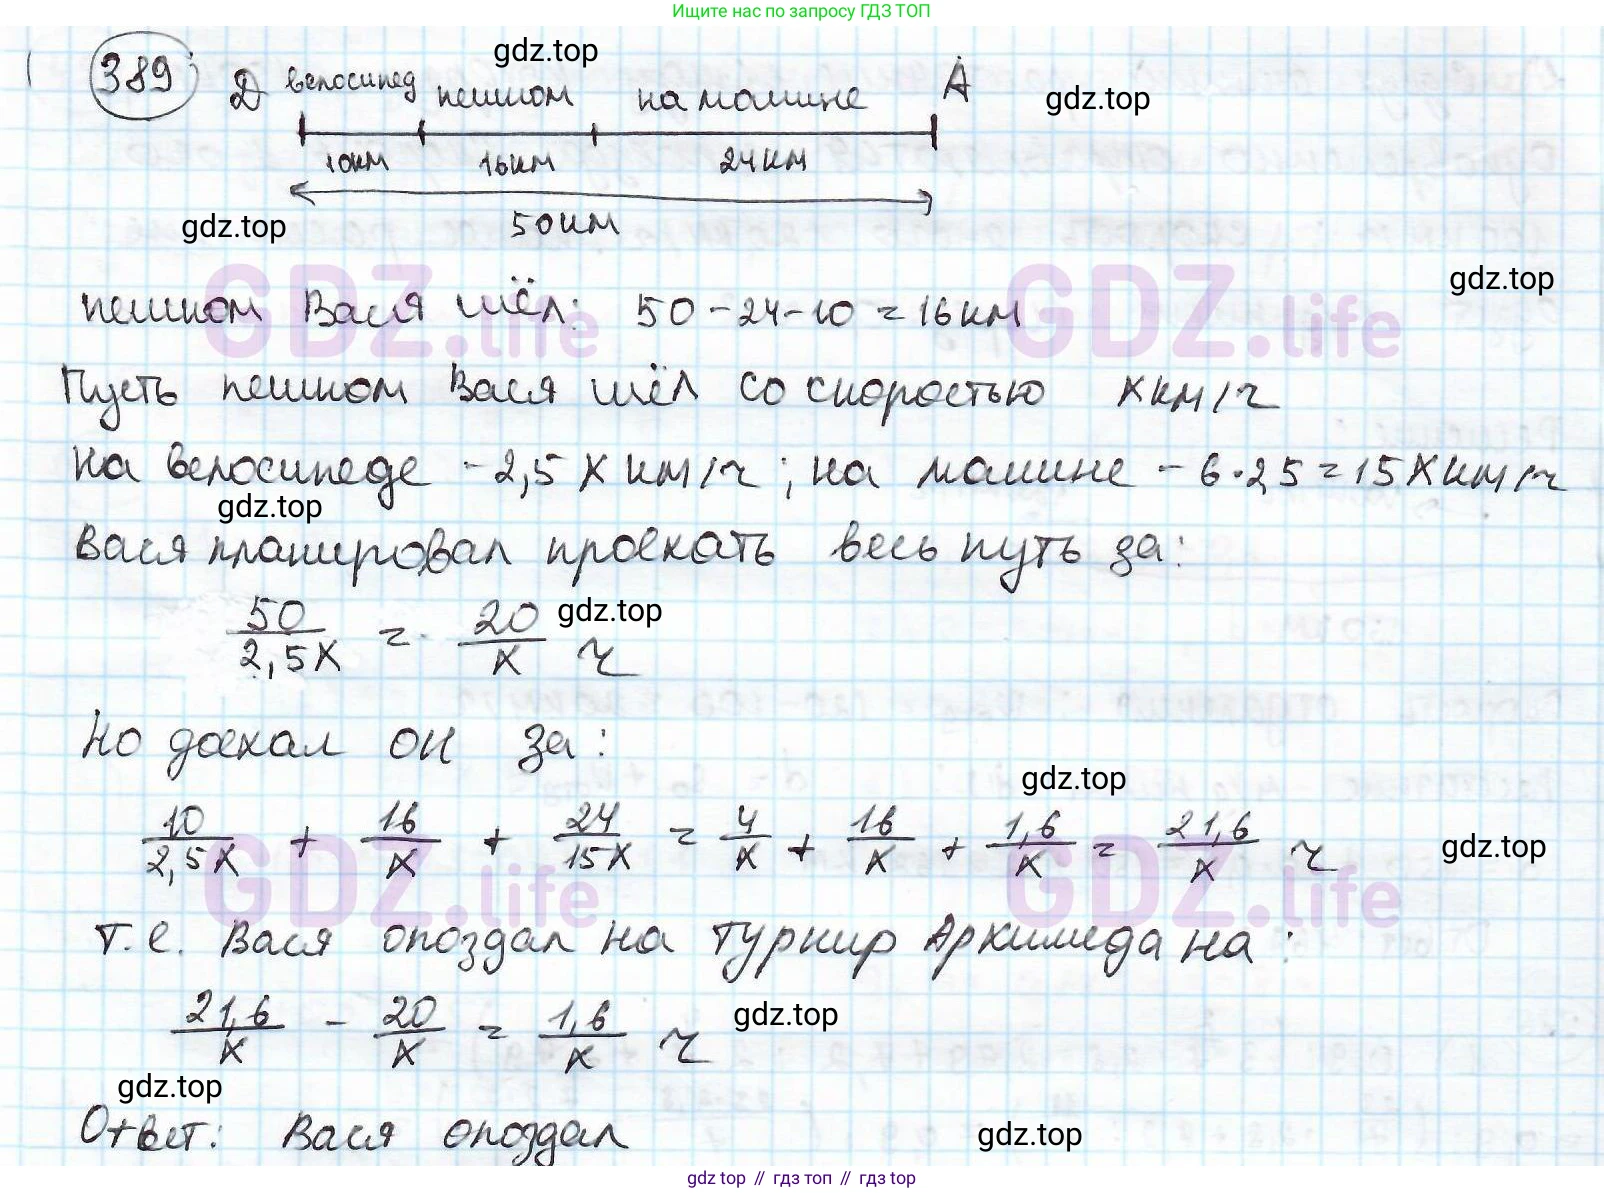 Ищите нас по запросу ГДЗ ТОП
389
gdz.top
Д велосипед пешком на машине А
gdz.top
10км 16км 24км
50км
gdz.top
gdz.top
GDZ.life GDZ.life
пешком Вася шёл: 50-24-10=16км
Пусть пешком Вася шёл со скоростью x км/ч
на велосипеде - 2,5x км/ч; на машине - 6·2,5=15x км/ч
gdz.top
Вася планировал проехать весь путь за:
50/2,5x = 20/x ч
gdz.top
Но доехал он за:
gdz.top
10/2,5x + 16/x + 24/15x = 4/x + 16/x + 1,6/x = 21,6/x ч
gdz.top
GDZ.life GDZ.life
т.е. Вася опоздал на турнир Архимеда на:
21,6/x - 20/x = 1,6/x ч
gdz.top
gdz.top
Ответ: Вася опоздал
gdz.top
gdz.top // гдз топ // гдз.top